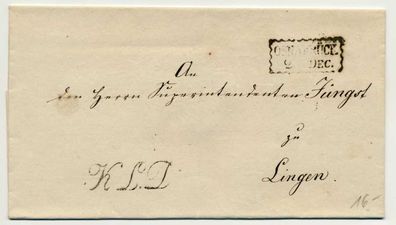 OSNABRÜCK
2 DEC.
An
den Herrn Superintendenten Jüngst
zu
K L D
Lingen.
16.-